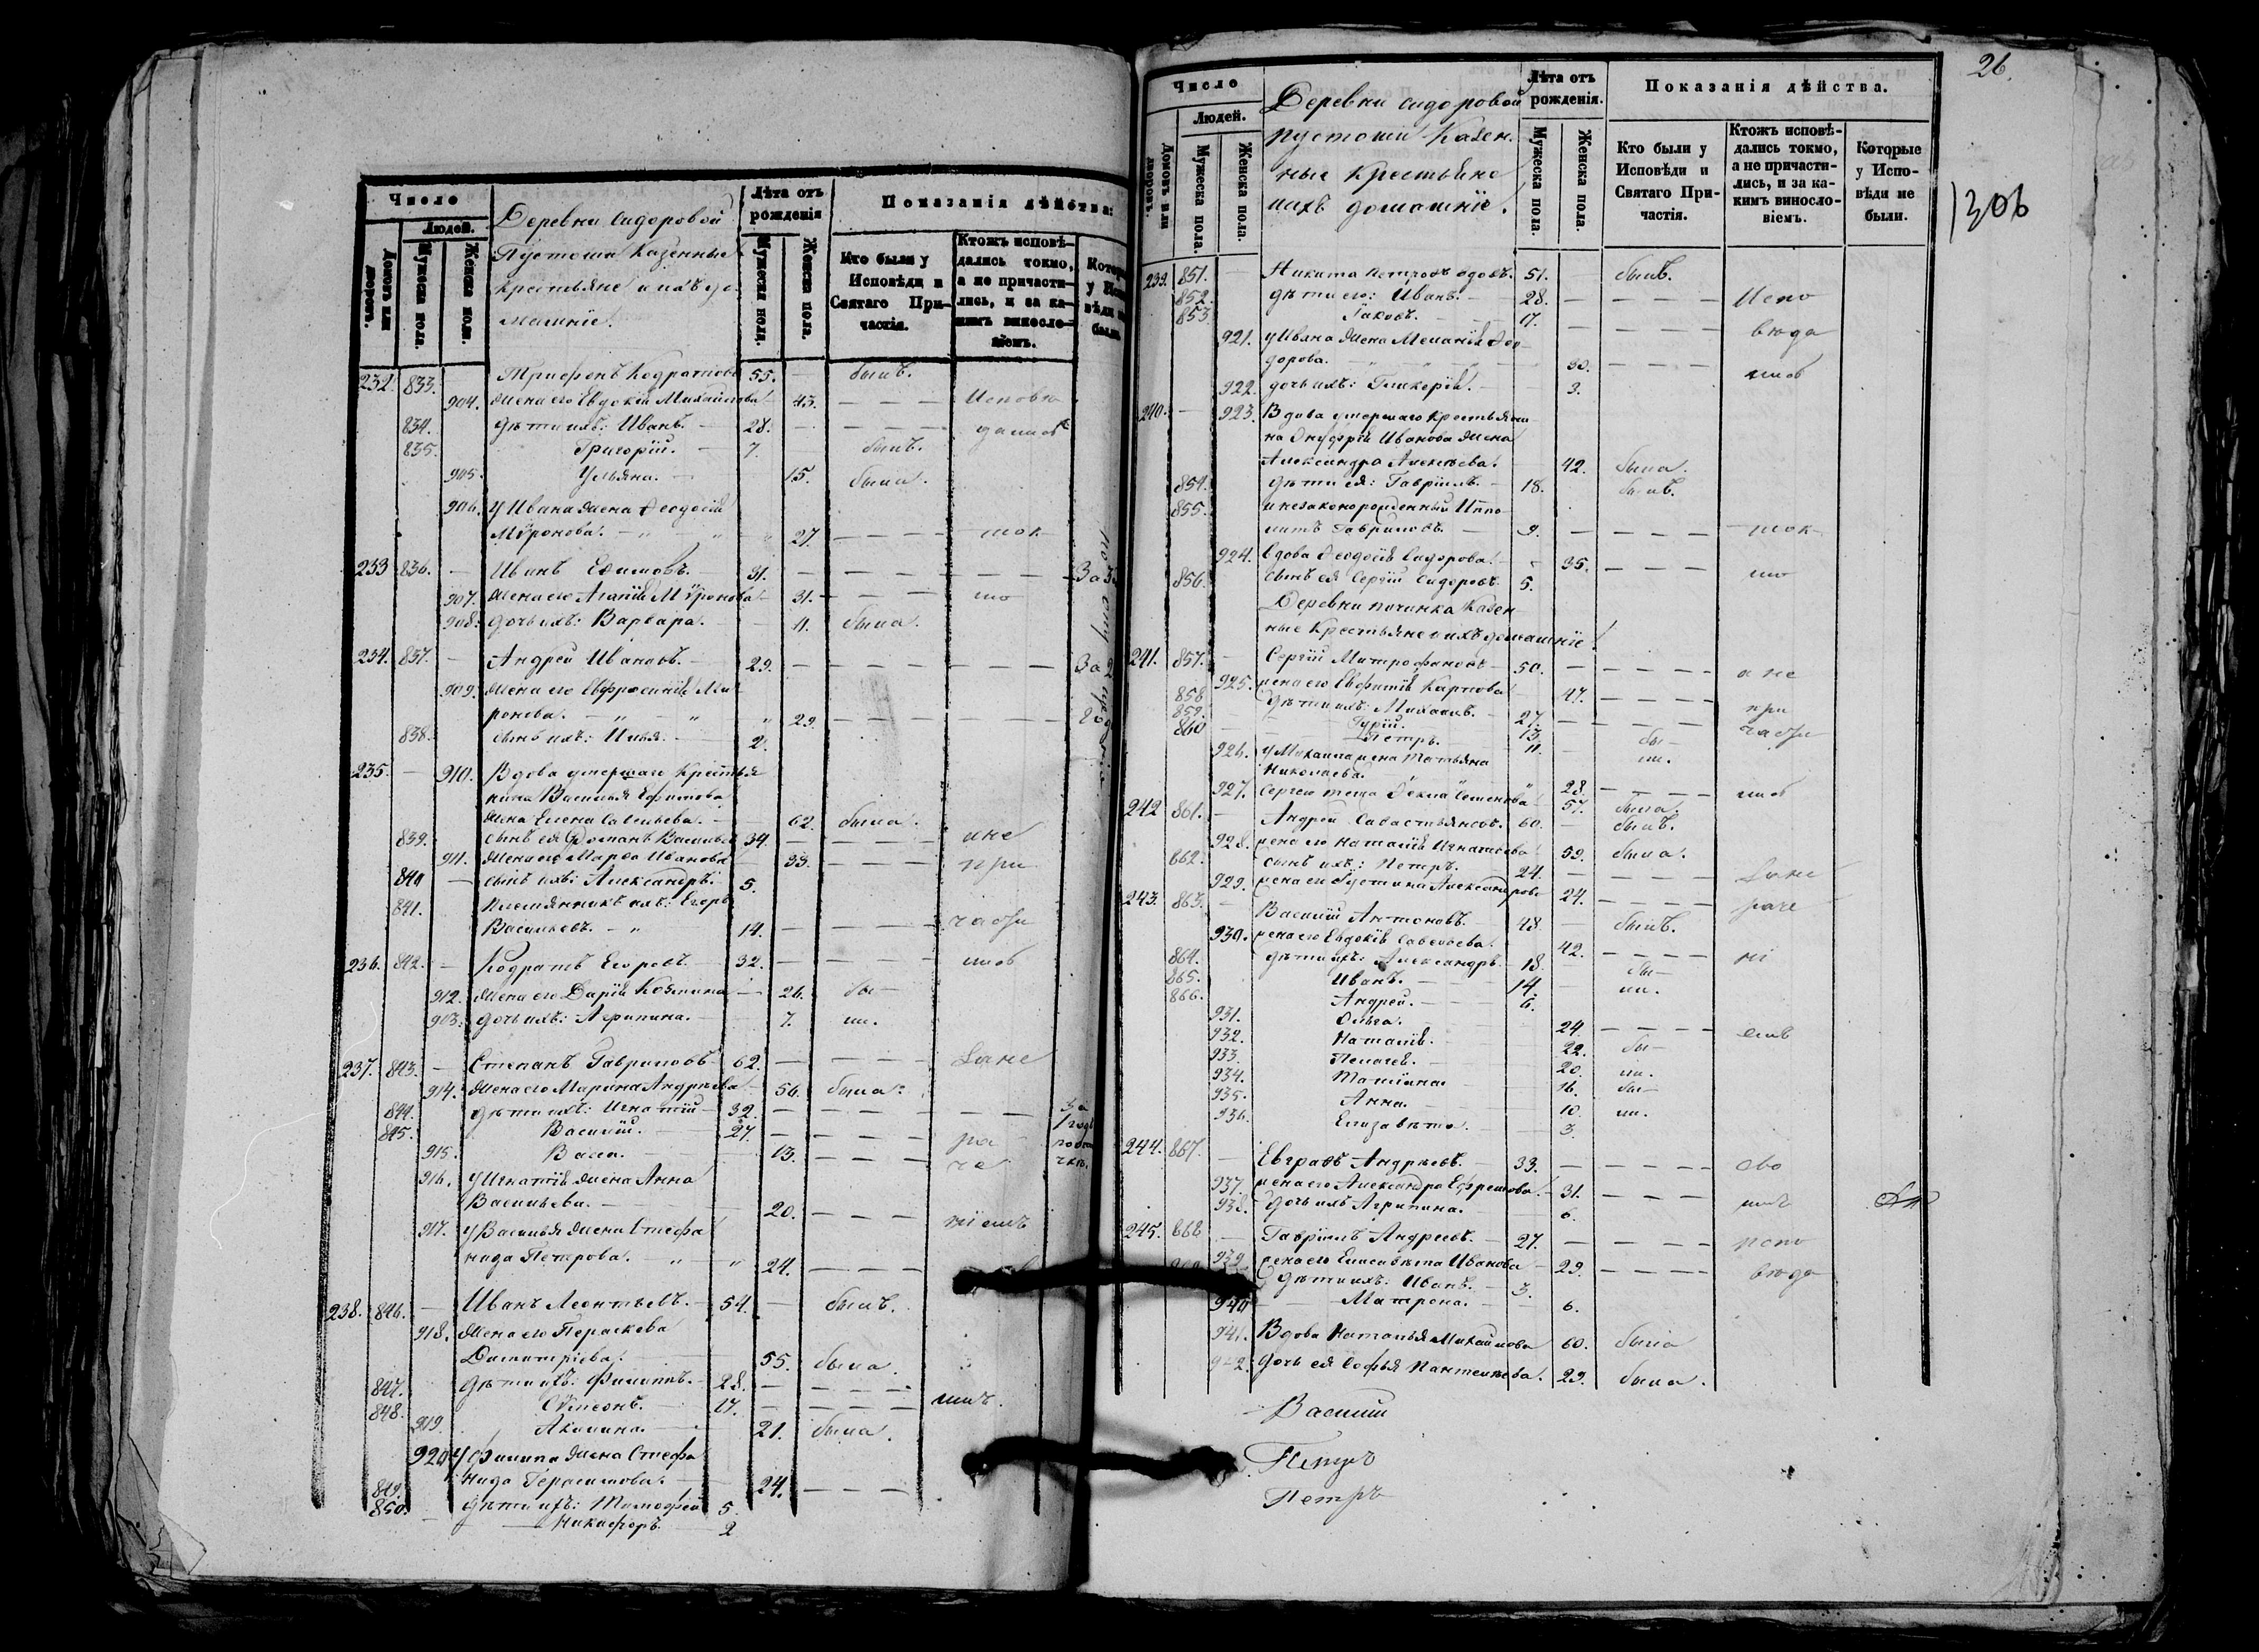 Число
Людей.
Домовъ или дворовъ.
Мужеска пола.
Женска пола.
Деревни Сидоровой
Пустоши Казенные
крестьяне и ихъ до
машніе.
Лѣта отъ рожденія
Мужеска пола.
Женска пола.
Показанія дѣйства:
Кто были у Исповѣди и Святаго При-
частія.
Ктожъ исповѣ-
дались токмо,
а не причасти-
лись, и за ка-
кимъ винослo-
віемъ.
232. 833. Трифонъ Кодратовъ 55. былъ.
904. жена его Евдокія Михайлова 43. Исповѣ
834. дѣти ихъ: Иванъ. 28. дались
835. Григорій. 7. былъ.
905. Ульяна. 15. была.
906. у Ивана жена Ѳеодосія
Мѵронова. 27. ток
233 836. Иванъ Ефимовъ. 31.
907. жена его Агапія Мѵронова 31. мо
908. дочь ихъ: Варвара. 11. была.
234. 837. Андрей Ивановъ. 29.
909. жена его Евфросинія Ми
ронова. 29.
838. сынъ ихъ: Илья. 2.
235. 910. Вдова умершаго Крестья
нина Василья Ефимова
жена Елена Савельева. 62. была.
839. сынъ ея Романъ Васильев 34. а не
911. жена его Марѳа Иванова 33. при
840 сынъ ихъ: Александръ. 5.
841. Племянникъ ихъ: Егоръ
Васильевъ. 14. части
236. 842. Кодратъ Егоровъ. 32. лись
912. жена его Дарія Козмина 26. бы
913. дочь ихъ: Агрипина. 7. ли.
237. 843. Степанъ Гавриловъ 62. за не
914. жена его Марина Андрѣева 56. была.
844. дѣти ихъ: Игнатій 32. За
845. Василій. 27. ра 1 годъ
915. Васса. 13. че
916. у Игнатія жена Анна
Васильева. 20.
917. у Василья жена Стефа
нида Петрова. 24. ніемъ
238. 846. Иванъ Леонтьевъ. 54. былъ.
918. жена его Параскева
Димитріева. 55. была.
847. дѣти ихъ: Филиппъ. 28.
848. Сѵмеонъ. 17. имъ.
919. Акилина. 21. была.
920 у Филипа жена Стефа
нида Герасимова. 24.
849. дѣти ихъ: Тимофей 5
850. Никифоръ. 2
26.
1306
Число
Людей.
Домовъ или дворовъ.
Мужеска пола.
Женска пола.
Деревни Сидоровой
пустоши Казен.
ные Крестьяне
и ихъ домашніе.
Лѣта отъ рожденія.
Мужеска пола.
Женска пола.
Показанія дѣйства.
Кто были у
Исповѣди и
Святаго При-
частія.
Ктожъ исповѣ-
дались токмо,
а не причасти-
лись, и за ка-
кимъ виносло-
віемъ.
Которые
у Испо-
вѣди не
были.
239. 851. Никита Петровъ вдовъ. 51. былъ.
852. дѣти его: Иванъ. 28. Испо
853. Іаковъ. 17. вѣда
921. у Ивана жена Меланія Ѳео
дорова. 30. лись
922. дочь ихъ: Гликерія. 3.
240. 923. Вдова умершаго Крестьяни
на Онуфрія Иванова жена
Александра Алексѣева. 42. была.
854. дѣти ея: Гавріилъ. 18. былъ.
855. и незаконорожденный Иппо
литъ Гавриловъ. 9. ток
924. Вдова Ѳеодосія Сидорова. 35.
856. сынъ ея Сергій Сидоровъ 5. мо
Деревни починка Казен
ные Крестьяне и ихъ домашніе.
241. 857. Сергій Митрофановъ 50. а не
925. жена его Евфимія Карпова 47.
858 дѣти ихъ: Михаилъ. 27. при
859. Гурій. 13. части
860 Петръ. 11. бы
926. у Михаила жена Татьяна ли.
Николаева. 28. лись
927. Сергея теща Ѳекла Семенова 57. была.
242 861. Андрей Савастьяновъ. 60. былъ.
928. жена его Наталія Игнатьева 59. была.
862. сынъ ихъ: Петръ. 24. За не
929. жена его Іустина Александрова 24. раче
243. 863. Василій Антоновъ. 48. былъ.
930. жена его Евдокія Савельева. 42. ні
864. дѣти ихъ: Александръ. 18. бы
865. Иванъ. 14. ли.
866. Андрей. 6.
931. Ольга. 24 емъ
932. Наталія. 22. бы
933. Пелагея. 20. ли.
934. Татіана 16. бы
935. Анна. 10. ли.
936. Елизавета. 3.
244. 867. Евграфъ Андрѣевъ. 33. сво
937. жена его Александра Ефремова. 31. имъ
938. дочь ихъ Агрипина. 6.
245. 868 Гавріилъ Андреевъ. 27.
939 жена его Елисавета Иванова 29. вѣда
дѣти ихъ: Иванъ. 3.
940 Матрона. 6.
941. Вдова Наталья Михайлова 60. была
942. дочь ея Софья Пантелѣева. 29. была.
Василій
Петръ
Петръ